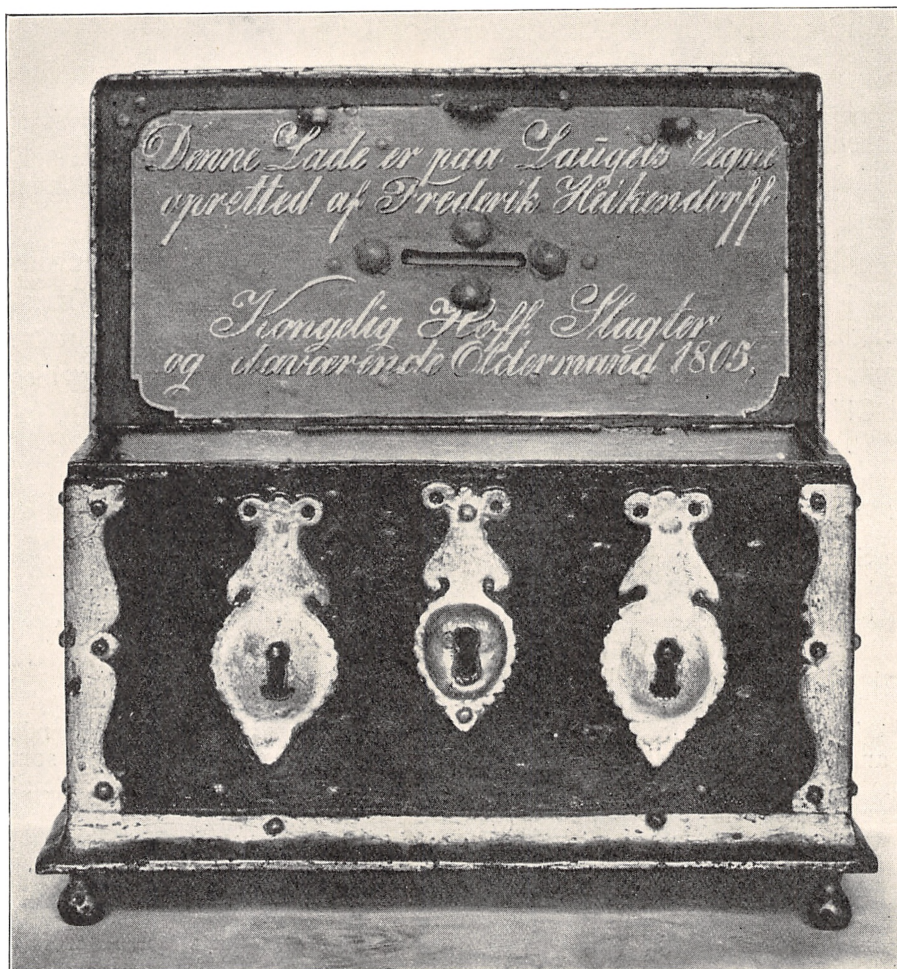 Denne Lade er paa Laũgets Vegne
opretted af Frederik Heikendorff
Kongelig Hoff Slagter
og daværende Oldermand 1805,